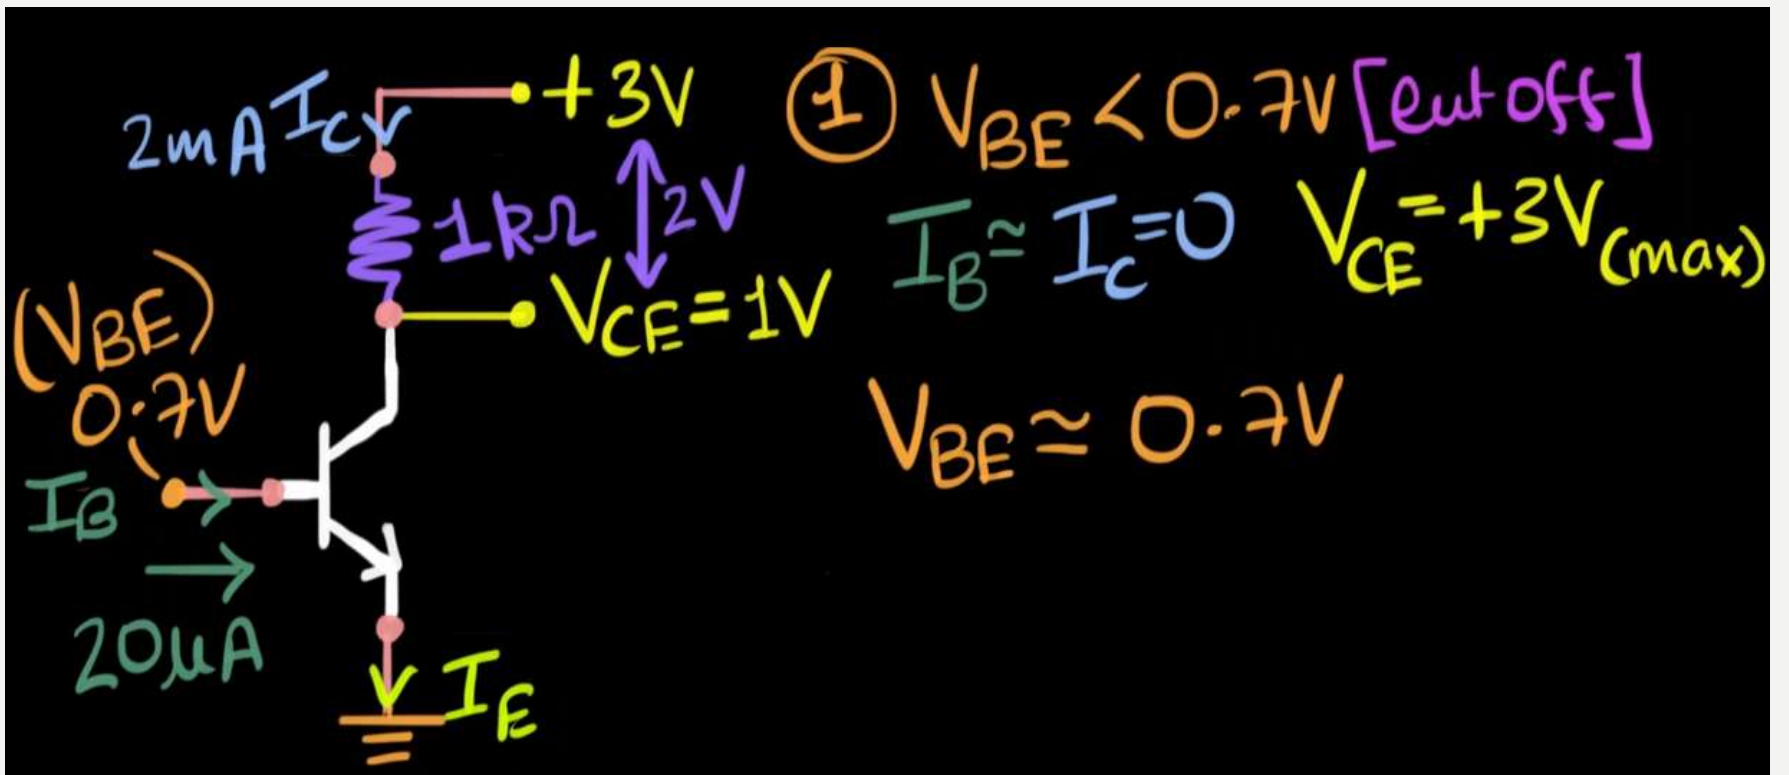 +3V
2mA I_C
1kΩ
2V
V_CE = 1V
(V_BE)
0.7V
I_B
20μA
I_E
① V_BE < 0.7V [cut off]
I_B ≃ I_C = 0
V_CE = +3V (max)
V_BE ≃ 0.7V